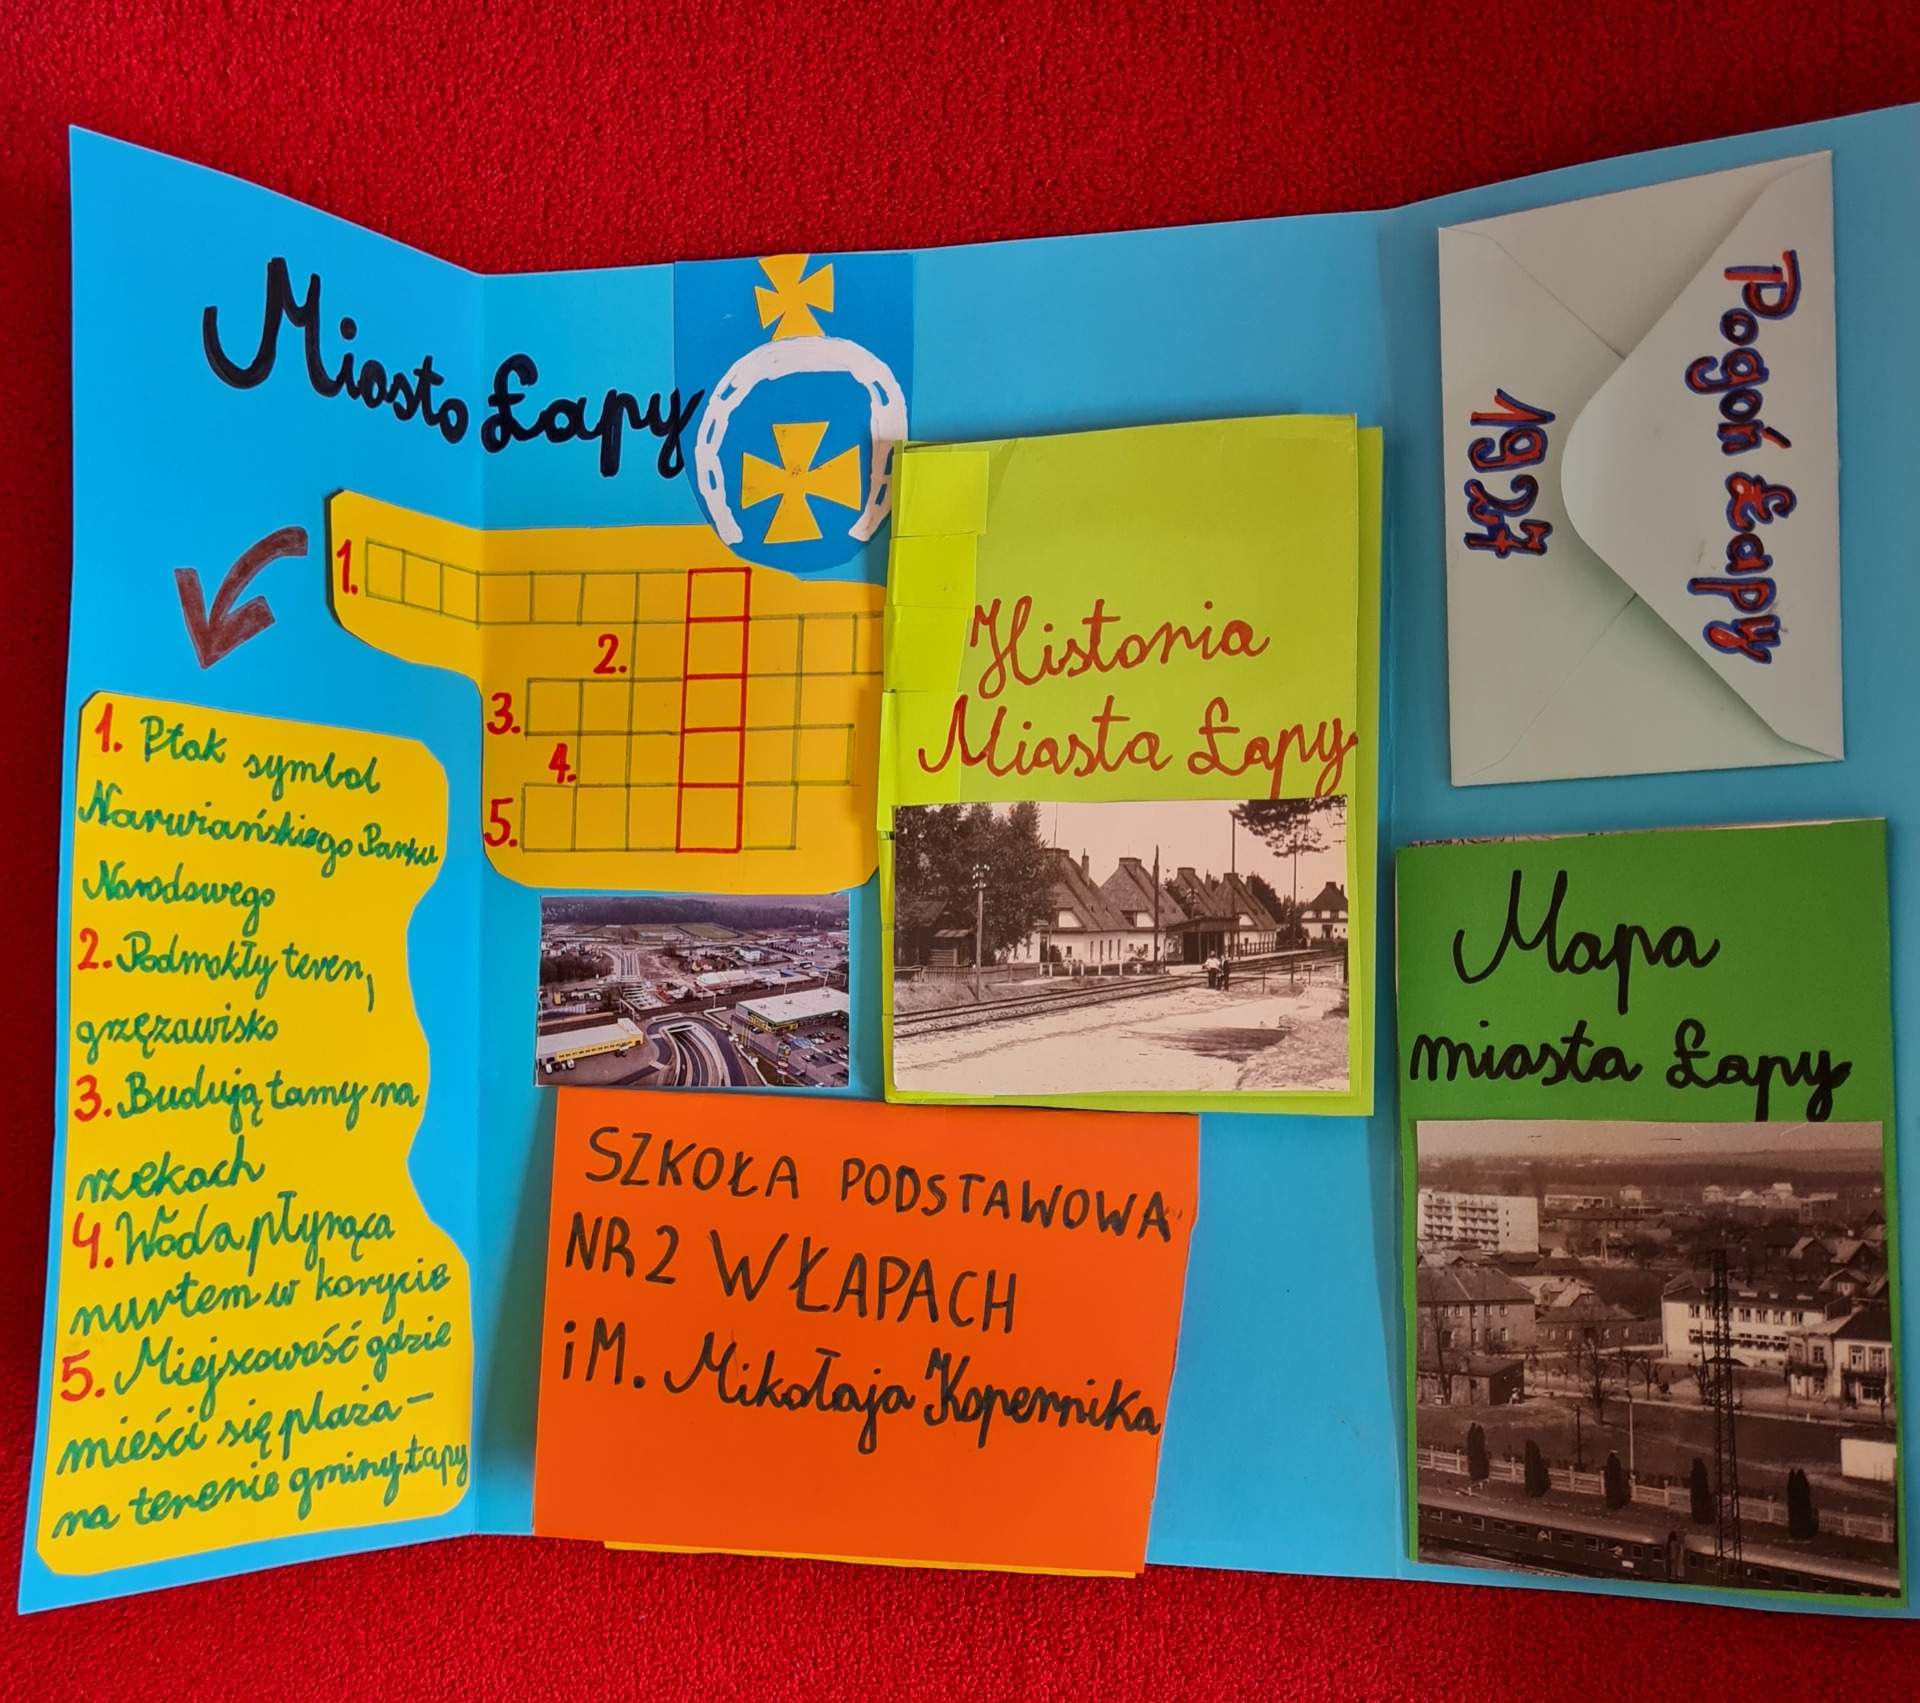 Miasto Łapy
1.
2.
3.
4.
5.
1. Ptak symbol
Narwiańskiego Parku
Narodowego
2. Podmokły teren,
grzęzawisko
3. Budują tamy na
rzekach
4. Woda płynąca
nurtem w korycie
5. Miejscowość gdzie
mieści się plaża –
na terenie gminy Łapy
Historia
Miasta Łapy
SZKOŁA PODSTAWOWA
NR 2 W ŁAPACH
iM. Mikołaja Kopernika
Pogoń Łapy
1927
Mapa
miasta Łapy